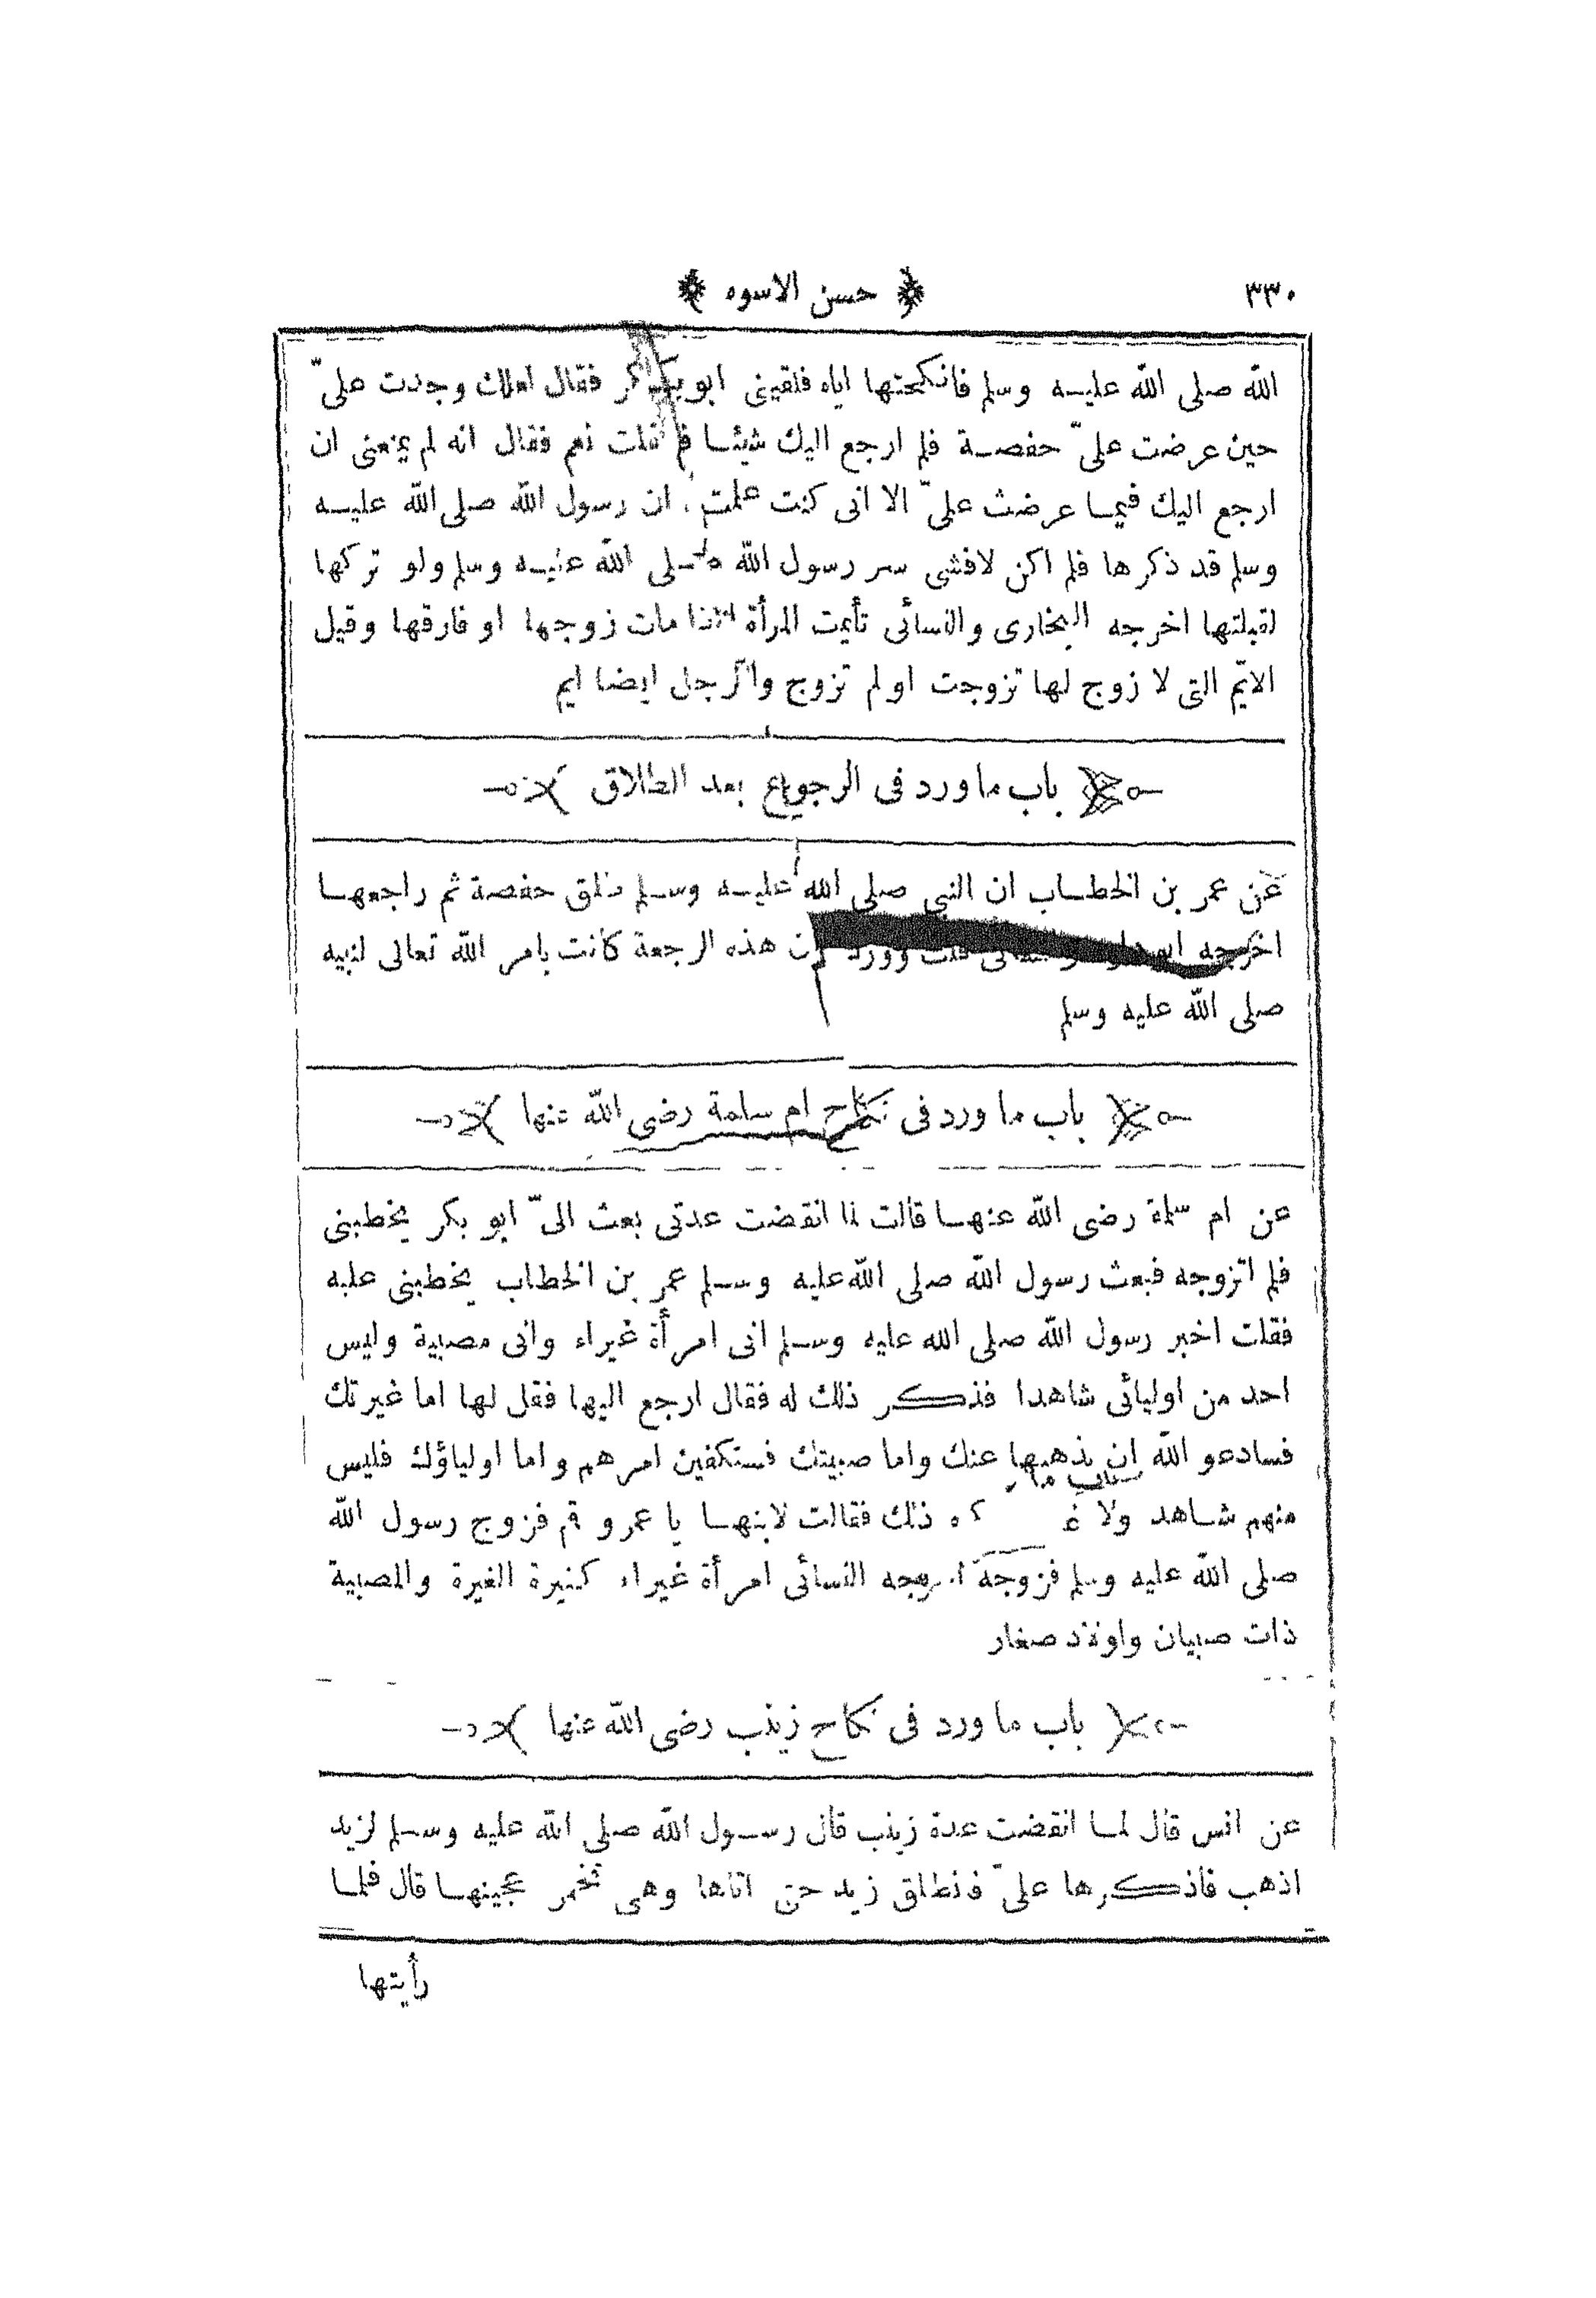 ٣٣٠
﴿ حسن الاسوه ﴾
الله صلى الله عليه وسلم فانكحتها اياه فلقينى ابو بكر فقال لعلك وجدت علىّ
حين عرضت علىّ حفصة فلم ارجع اليك شيئا قلت نعم فقال انه لم يمنعنى ان
ارجع اليك فيما عرضت علىّ الا انى كنت علمت ان رسول الله صلى الله عليه
وسلم قد ذكرها فلم اكن لافشى سر رسول الله صلى الله عليه وسلم ولو تركها
لقبلتها اخرجه البخارى والنسائى تأيمت المرأة اذا مات زوجها او فارقها وقيل
الايّم التى لا زوج لها تزوجت او لم تزوج والرجل ايضا ايم
باب ما ورد فى الرجوع بعد الطلاق
عن عمر بن الخطاب ان النبى صلى الله عليه وسلم طلق حفصة ثم راجعها
اخرجه ابو داود والنسائى قلت وورد ان هذه الرجعة كانت بامر الله تعالى لنبيه
صلى الله عليه وسلم
باب ما ورد فى نكاح ام سلمة رضى الله عنها
عن ام سلمة رضى الله عنها قالت لما انقضت عدتى بعث الىّ ابو بكر يخطبنى
فلم اتزوجه فبعث رسول الله صلى الله عليه وسلم عمر بن الخطاب يخطبنى عليه
فقلت اخبر رسول الله صلى الله عليه وسلم انى امرأة غيراء وانى مصبية وليس
احد من اوليائى شاهدا فذكر ذلك له فقال ارجع اليها فقل لها اما غيرتك
فسادعو الله ان يذهبها عنك واما صبيتك فستكفين امرهم واما اولياؤك فليس
منهم شاهد ولا ذلك فقالت لابنها يا عمرو قم فزوج رسول الله
صلى الله عليه وسلم فزوجه اخرجه النسائى امرأة غيراء كثيرة الغيرة والمصبية
ذات صبيان واولاد صغار
باب ما ورد فى نكاح زينب رضى الله عنها
عن انس قال لما انقضت عدة زينب قال رسول الله صلى الله عليه وسلم لزيد
اذهب فاذكرها علىّ فانطلق زيد حتى اتاها وهى تخمر عجينها قال فلما
رأيتها